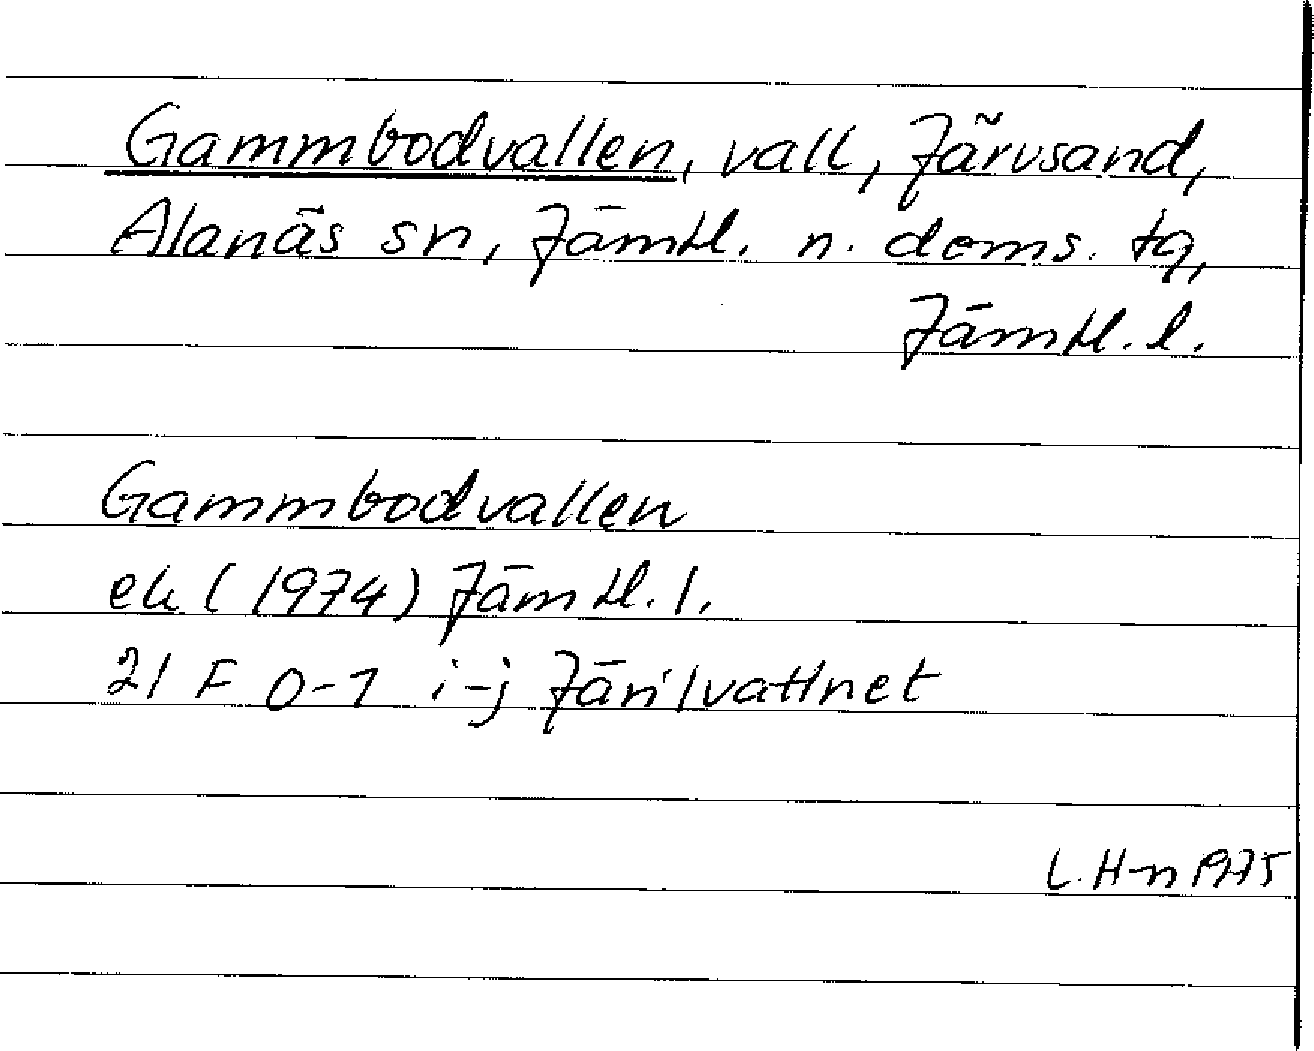 Gammbodvallen, vall, Järvsand,
Alanäs sn, Jämtl. n. doms. tg,
Jämtl. l.
Gammbodvallen
ek (1974) Jämtl. l.
21 F 0-1 i-j Järilvattnet
L. H-n 1975